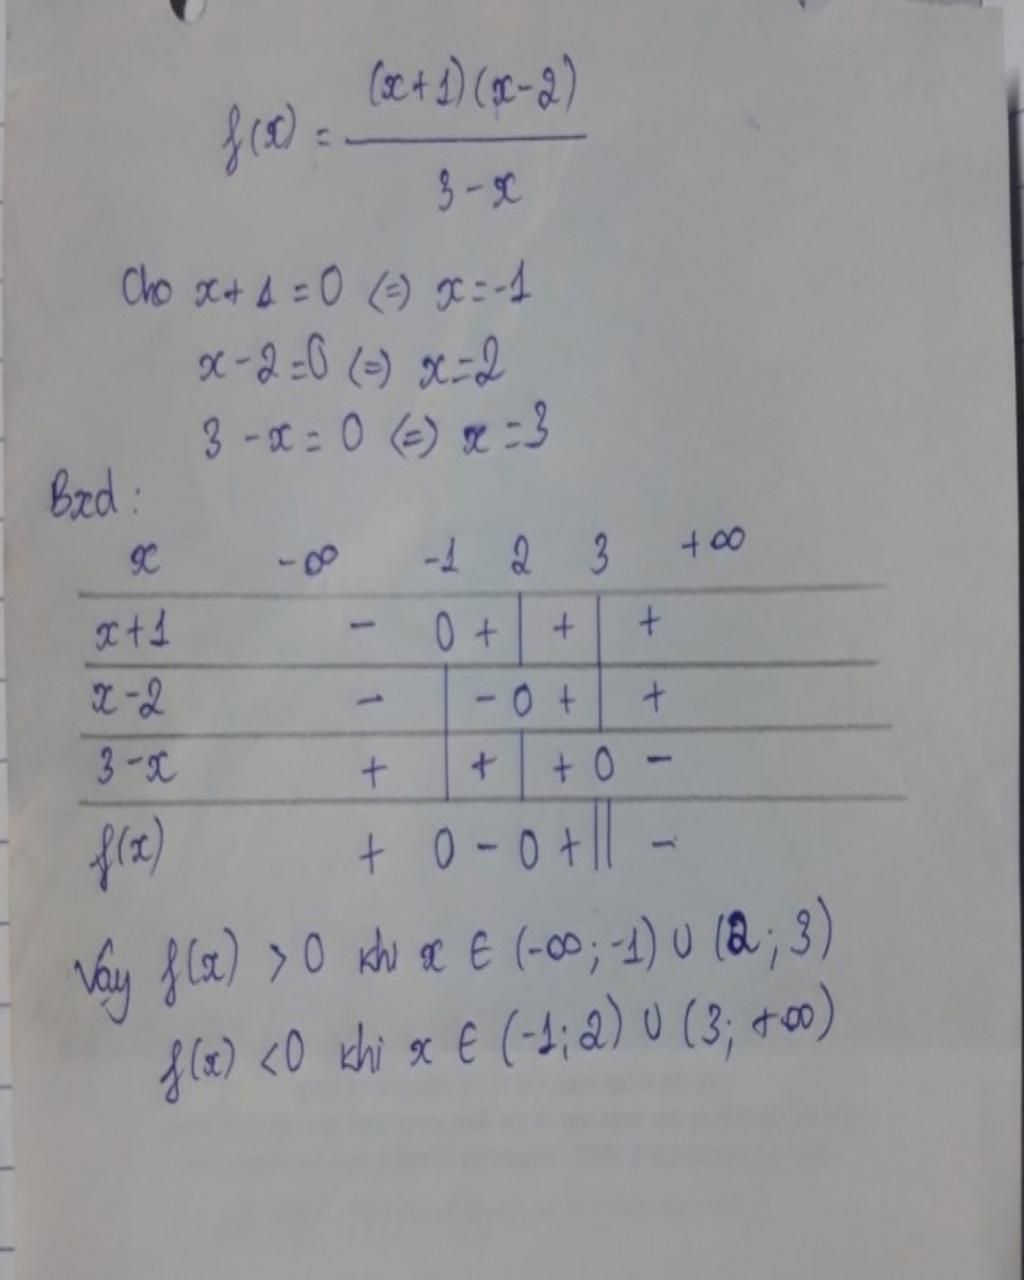 f(x) = (x+1)(x-2) / 3-x
Cho x+1=0 (=) x=-1
x-2=0 (=) x=2
3-x=0 (=) x=3
Bxd:
x -∞ -1 2 3 +∞
x+1 - 0 + | + | +
x-2 - | - 0 + | +
3-x + | + | + 0 -
f(x) + 0 - 0 + || -
Vậy f(x) >0 khi x ∈ (-∞;-1) ∪ (2;3)
f(x) <0 khi x ∈ (-1;2) ∪ (3;+∞)